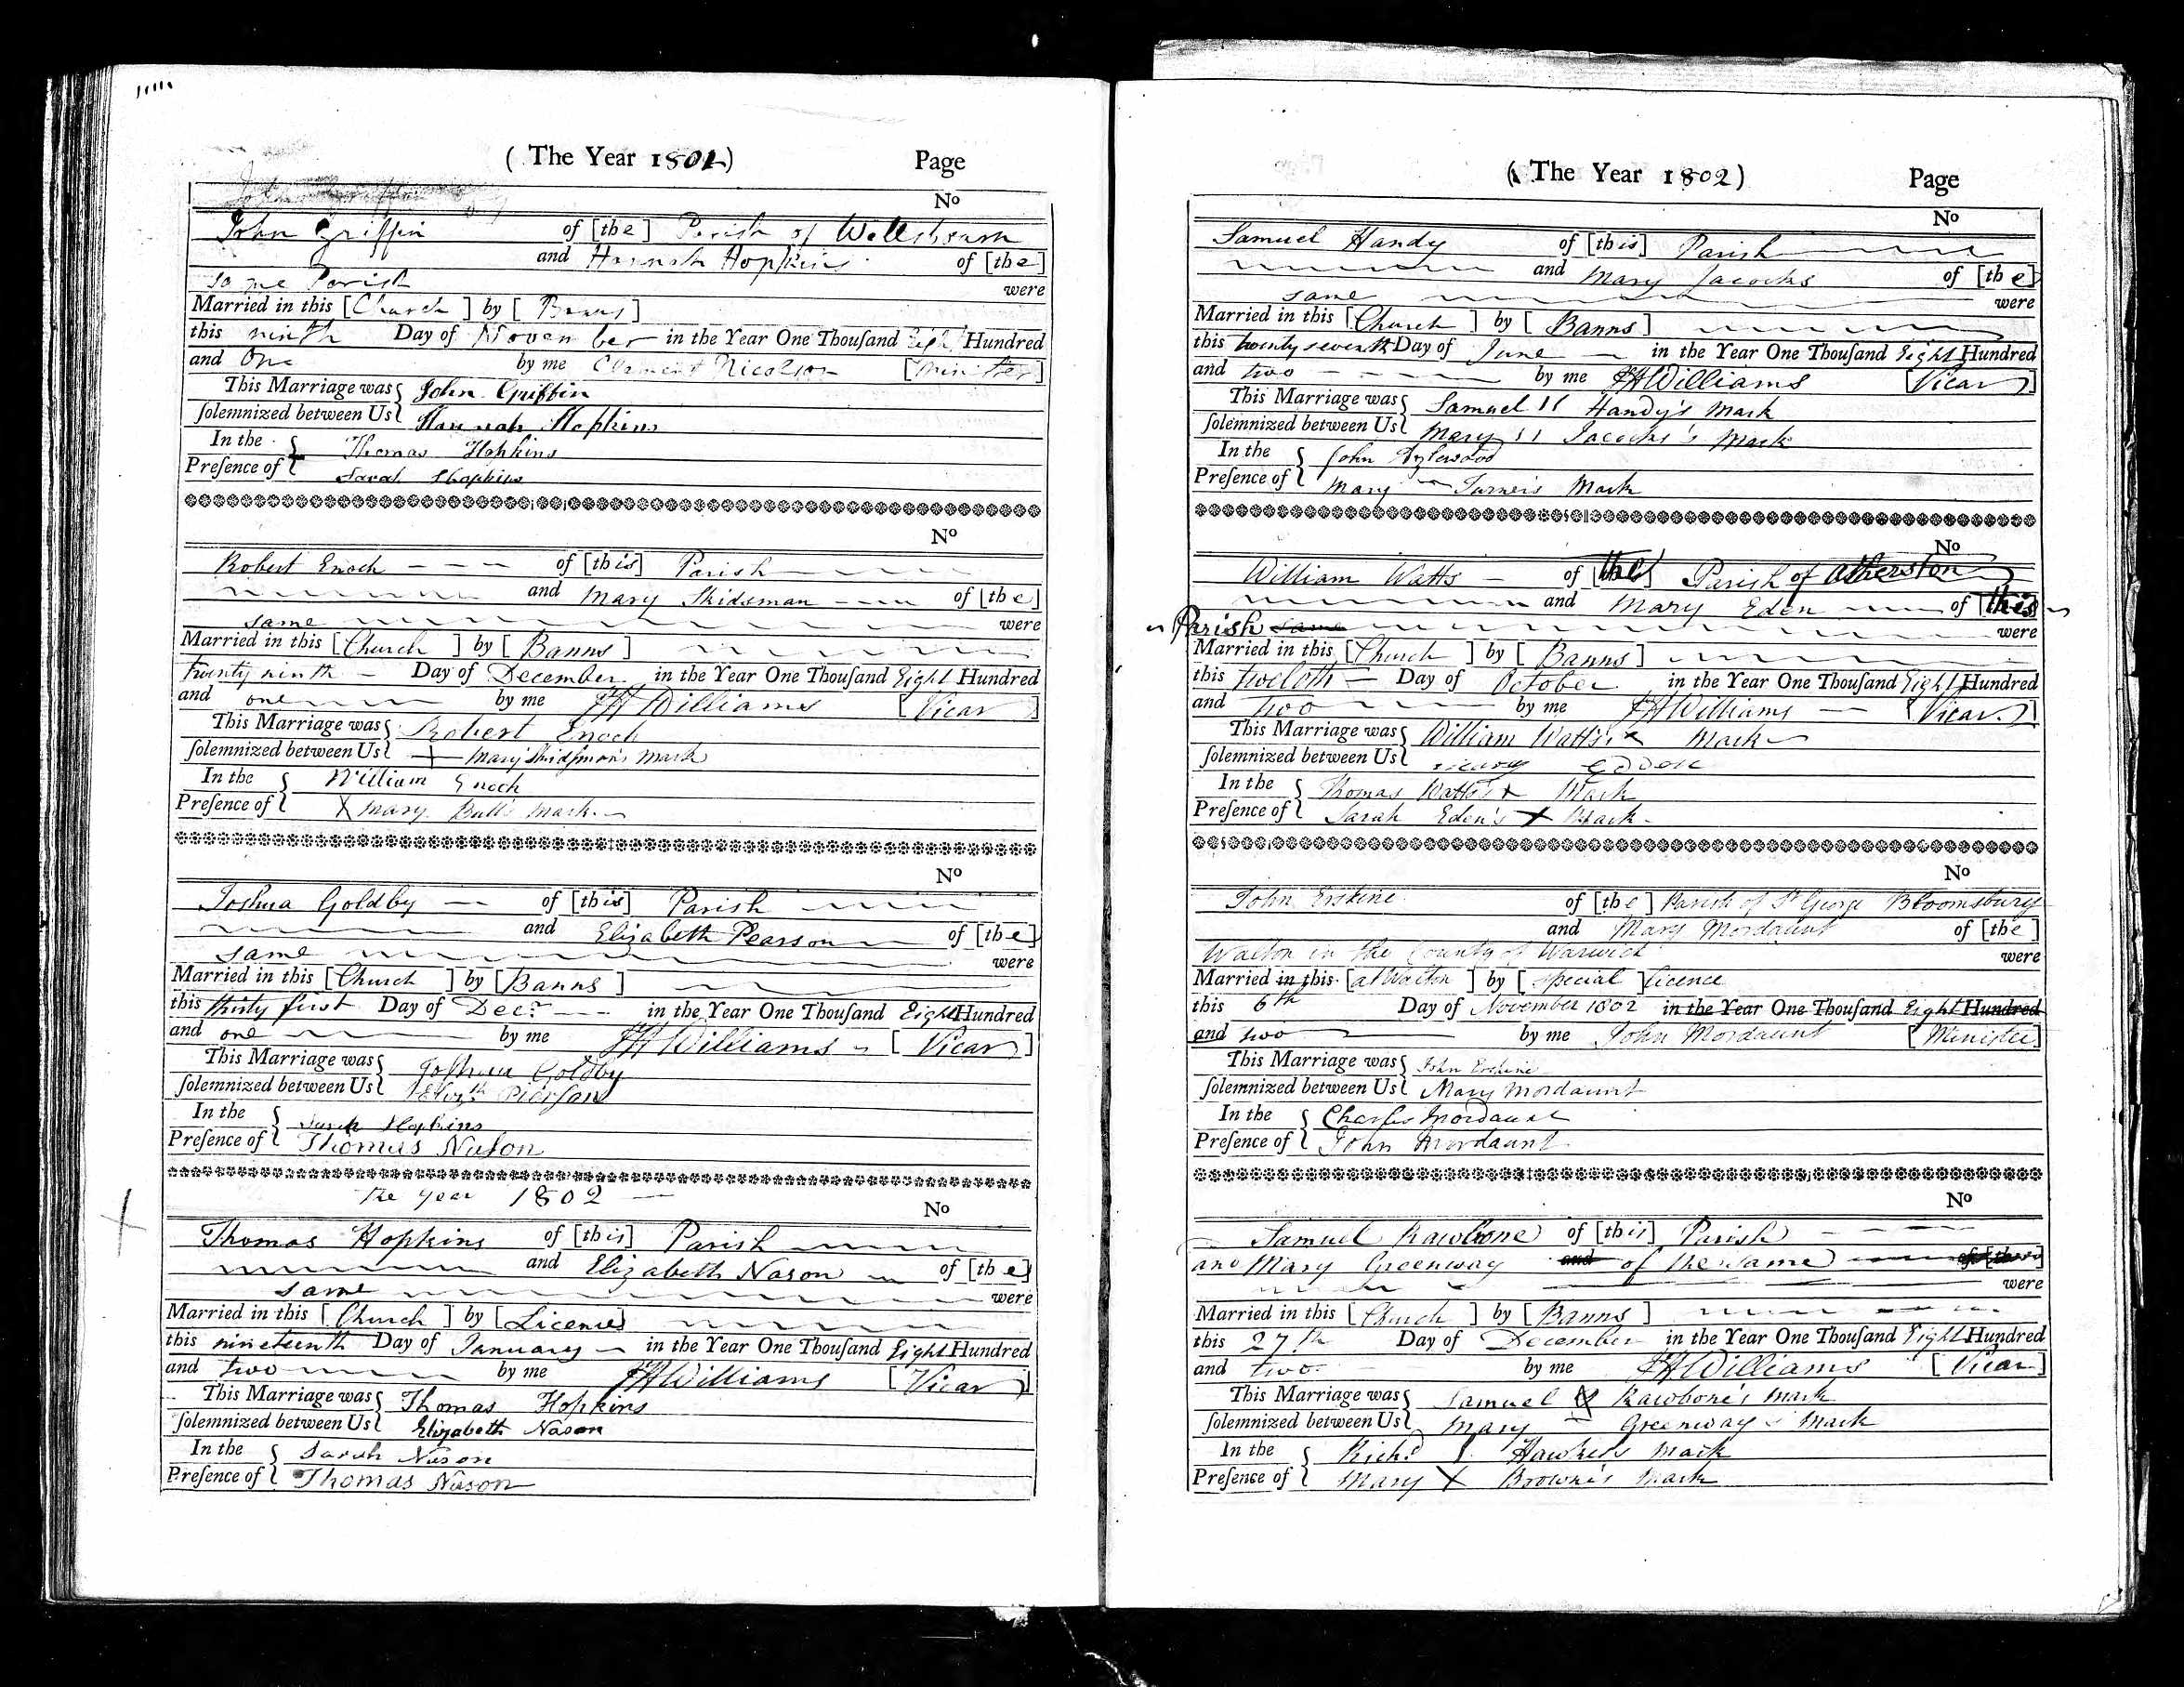 ( The Year 1801 ) Page
No
John Griffin of [the] Parish of Wellsburn
and Hannah Hopkins of [the]
same Parish were
Married in this [Church] by [Banns]
this ninth Day of November in the Year One Thouſand Eight Hundred
and One by me Clement Nicolson [Minister]
This Marriage was John Griffin
ſolemnized between Us Hannah Hopkins
In the Thomas Hopkins
Preſence of Sarah Hopkins
No
Robert Enoch of [this] Parish
and Mary Skidsman of [the]
same were
Married in this [Church] by [Banns]
twenty ninth Day of December in the Year One Thouſand Eight Hundred
and one by me Williams [Vicar]
This Marriage was Robert Enoch
ſolemnized between Us + Mary Skidsmon's Mark
In the William Enoch
Preſence of X Mary Bull's Mark
No
Joshua Goldby of [this] Parish
and Elizabeth Pearson of [the]
same were
Married in this [Church] by [Banns]
this thirty first Day of Decr in the Year One Thouſand Eight Hundred
and one by me Williams [Vicar]
This Marriage was Joshua Goldby
ſolemnized between Us Elizth Pierſon
In the Sarah Hopkins
Preſence of Thomas Nason
The year 1802
No
Thomas Hopkins of [this] Parish
and Elizabeth Nason of [the]
same were
Married in this [Church] by [Licence]
this nineteenth Day of January in the Year One Thouſand Eight Hundred
and two by me Williams [Vicar]
This Marriage was Thomas Hopkins
ſolemnized between Us Elizabeth Nason
In the Sarah Nason
Preſence of Thomas Nason
( The Year 1802 ) Page
No
Samuel Handy of [this] Parish
and Mary Jacocks of [the]
same were
Married in this [Church] by [Banns]
this twenty seventh Day of June in the Year One Thouſand Eight Hundred
and two by me Williams [Vicar]
This Marriage was Samuel 11 Handy's Mark
ſolemnized between Us Mary 11 Jacocks's Mark
In the John
Preſence of Mary Turner's Mark
No
William Watts of [the] Parish of Atherston
and Mary Eden of [this]
Parish same were
Married in this [Church] by [Banns]
this twelvth Day of October in the Year One Thouſand Eight Hundred
and two by me Williams [Vicar]
This Marriage was William Watts's x Mark
ſolemnized between Us
In the Thomas Watts's x Mark
Preſence of Sarah Eden's X Mark
No
John Erskine of [the] Parish of St George Bloomsbury
and Mary Mordaunt of [the]
Walton in the County of Warwick were
Married in this [at Walton] by [special] licence
this 6th Day of November 1802 in the Year One Thouſand Eight Hundred
and two by me John Mordaunt [Minister]
This Marriage was John Erskine
ſolemnized between Us Mary Mordaunt
In the Charles Mordaunt
Preſence of John Mordaunt
No
Samuel Rawbone of [this] Parish
and Mary Greenway and of the same
were
Married in this [Church] by [Banns]
this 27th Day of December in the Year One Thouſand Eight Hundred
and two by me Williams [Vicar]
This Marriage was Samuel Rawbone's Mark
ſolemnized between Us Mary Greenway's Mark
In the Richd Hawkes's Mark
Preſence of Mary X Browne's Mark